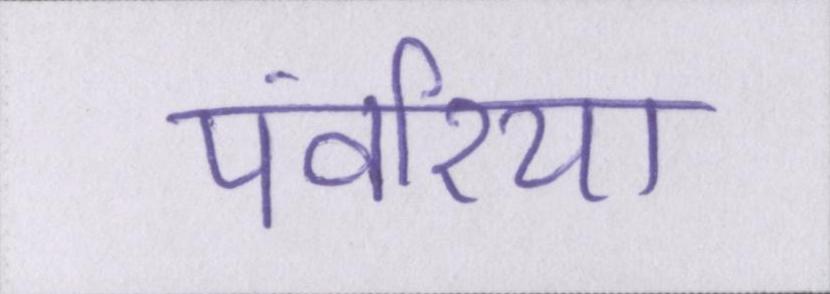 पंवरिया